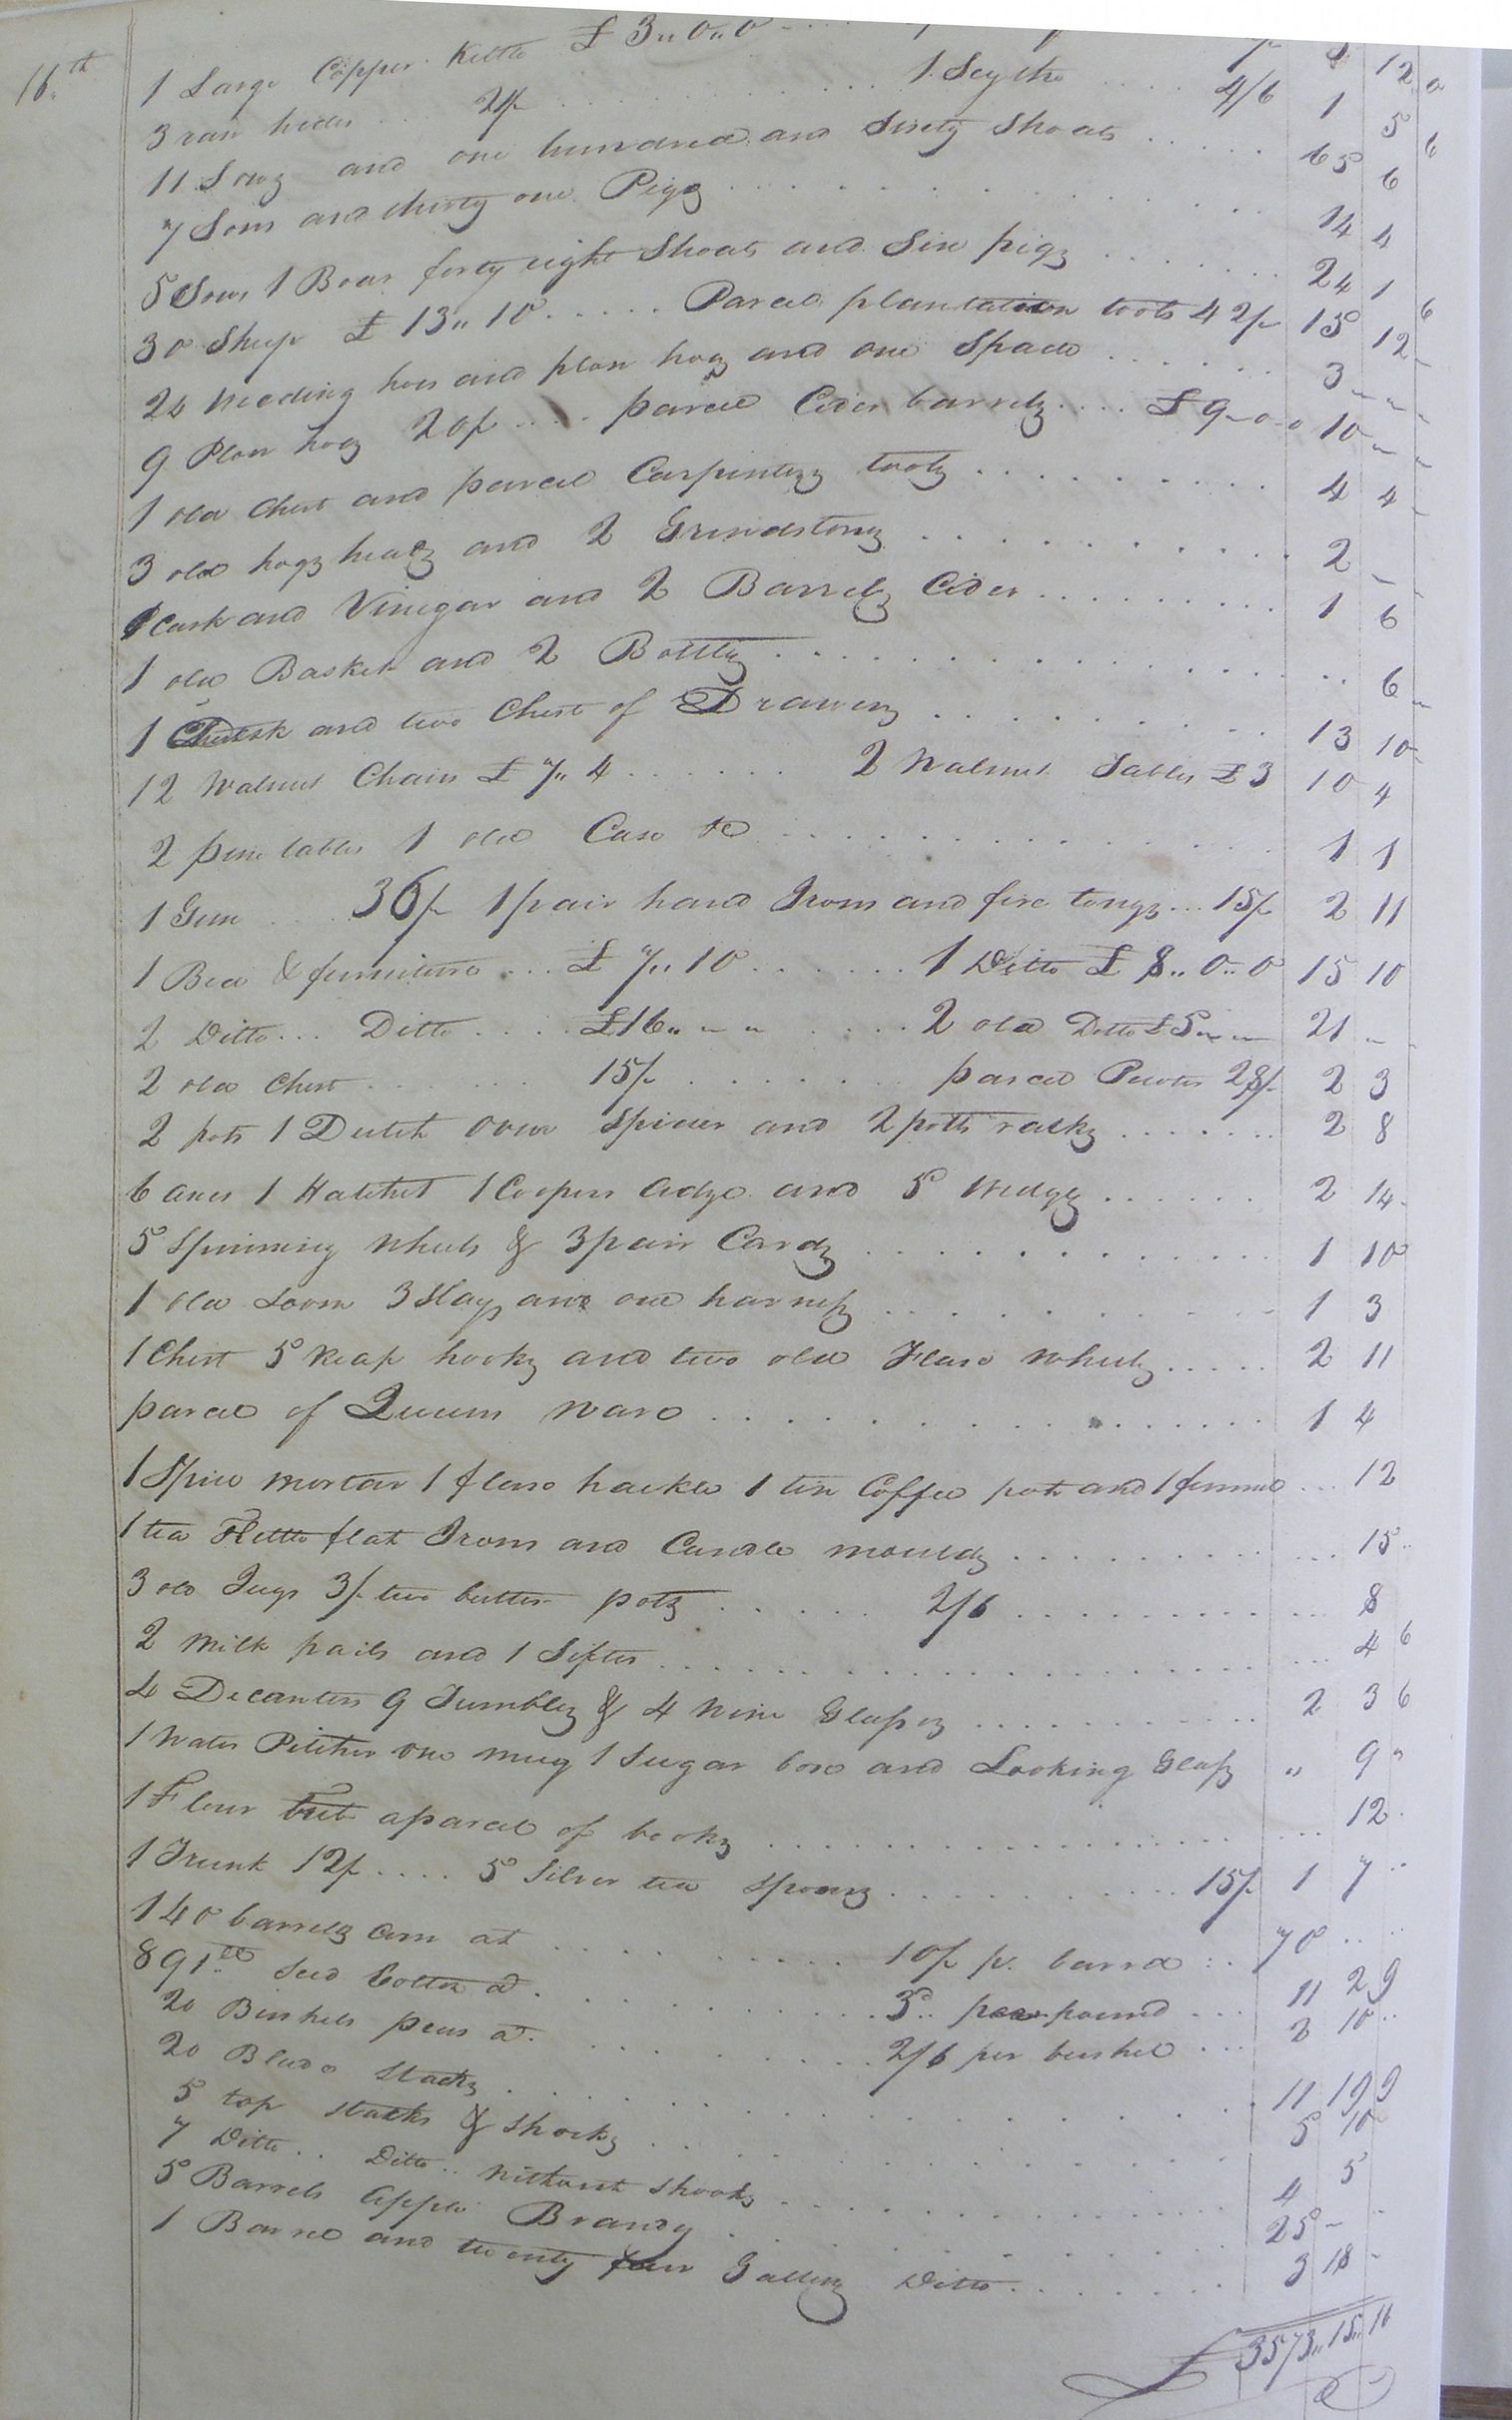 16th
1 Large Copper Kettle £ 3,, 0,, 0 12 0
3 raw hides 21/- 1 Scythe 4/6 1 5 6
11 Sowz and one hundred and Sixty Shoats 65 6
7 Sows and thirty one Pigz 14 4
5 Sows 1 Boar forty eight Shoats and Six pigz 24 1 6
30 Sheep £ 13,, 10 Parcel plantation tools 42/- 15 12 -
24 Weeding hoes and plow hoez and one Spade 3 - -
9 Plow hoez 20/- parcel Cider barrelz £ 9 - 0 - 0 10 - -
1 old Chest and parcel Carpinterz toolz 4 4 -
3 old hogzheadz and 2 Grindstonz 2 - -
1 Cask and Vinegar and 2 Barrelz Cider 1 6
1 old Basket and 2 Bottlz 6 -
1 Desk and two Chest of Drawerz 13 10 -
12 Walnut Chairs £ 7,, 4 2 Walnut Tables £ 3 10 4
2 pine tables 1 old Case &c 1 1
1 Gun 36/- 1 pair hand Irons and fire tongz 15/- 2 11
1 Bed & furniture £ 7,, 10 1 Ditto £ 8,, 0,, 0 15 10
2 Ditto Ditto £16,, - - 2 old Ditto £ 5 - - 21 - -
2 old Chest 15/- parcel Pewter 28/- 2 3
2 pots 1 Dutch oven Spider and 2 potts rackz 2 8
6 axes 1 Hatchet 1 Coopers Adze and 5 Wedgz 2 14 -
5 Spinning Wheels & 3 pair Cardz 1 10
1 old Loom 3 Slayz and one harnesz 1 3
1 Chest 5 Reap hookz and two old Flax Wheelz 2 11
parcel of Queens Ware 1 4
1 Spice mortar 1 flax hackle 1 tin Coffee pot and 1 funnel 12
1 tea Kettle flat Irons and Candle mouldz 15
3 old Jugs 3/- two butter potz 2/6 8
2 Milk pails and 1 Sifter 4 6
4 Decanters 9 Tumblez & 4 Wine Glassez 2 3 6
1 Water Pitcher one mug 1 Sugar box and Looking Glass ,, 9 ,,
1 Flour tub a parcel of bookz 12
1 Trunk 12/- 5 Silver tea Spoonz 15/- 1 7
140 barrelz Corn at 10/- p. barrel 70
891 lb Seed Cotton a 3 per pound 11 2 9
20 Bushels peas a 2/6 per bushel 2 10
20 Blade Stackz 11 19 9
5 top stacks & Shockz 5 10
7 Ditto Ditto Without Shocks 4 5
5 Barrels Apple Brandy 25 - -
1 Barrel and twenty four Gallonz Ditto 3 18 -
£ 3573,, 15,, 10